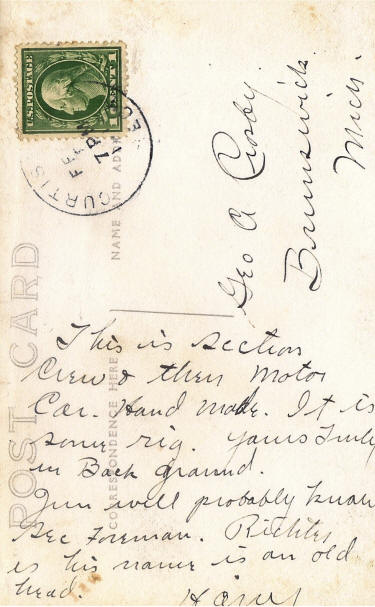 U.S. POSTAGE
CURTIS
FEB
7 PM
NEB
POST CARD
NAME AND ADD
CORRESPONDENCE HERE
Geo A Crosby
Brunswick
Mich.
This is section
Crew & their Motor
Car. Hand Made. It is
some rig. Yours Truly
in Back ground.
You will probably know
Sec Foreman. Richter
is his name is an old
head.